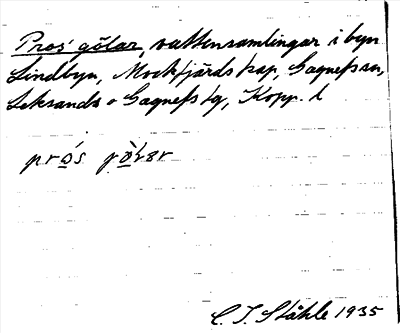 Pros' gölar, vattensamlingar i byn
Lindbyn, Mockfjärds kap, Gagnefs sn,
Leksands o Gagnefs tg, Kopp. l
C. I. Ståhle 1935